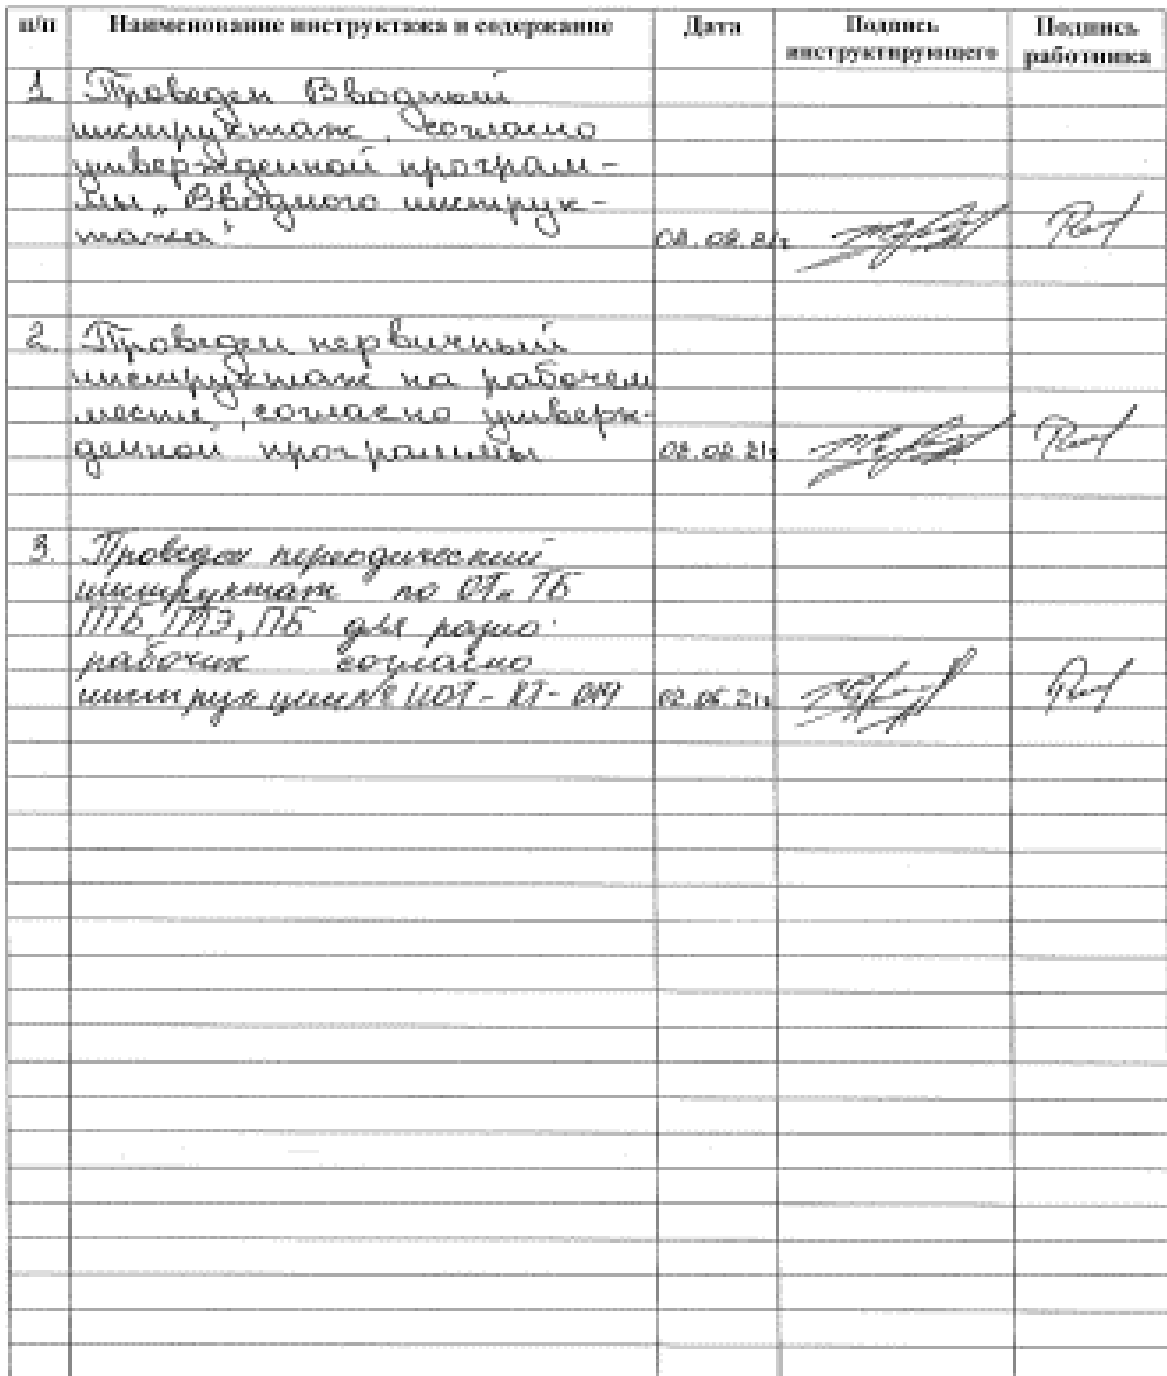 п/п Наименование инструктажа и содержание Дата Подпись инструктирующего Подпись работника
1 Проведен Вводный
инструктаж, согласно
утвержденной програм-
мы „Вводного инструк-
тажа"
2. Проведен первичный
инструктаж на рабочем
месте, согласно утверж-
денной программы
3. Проведен переодический
инструктаж по ОТ и ТБ
ПТБ, ПТЭ, ПБ для
рабочих согласно
инструкции № ИОТ - 02.05.21г